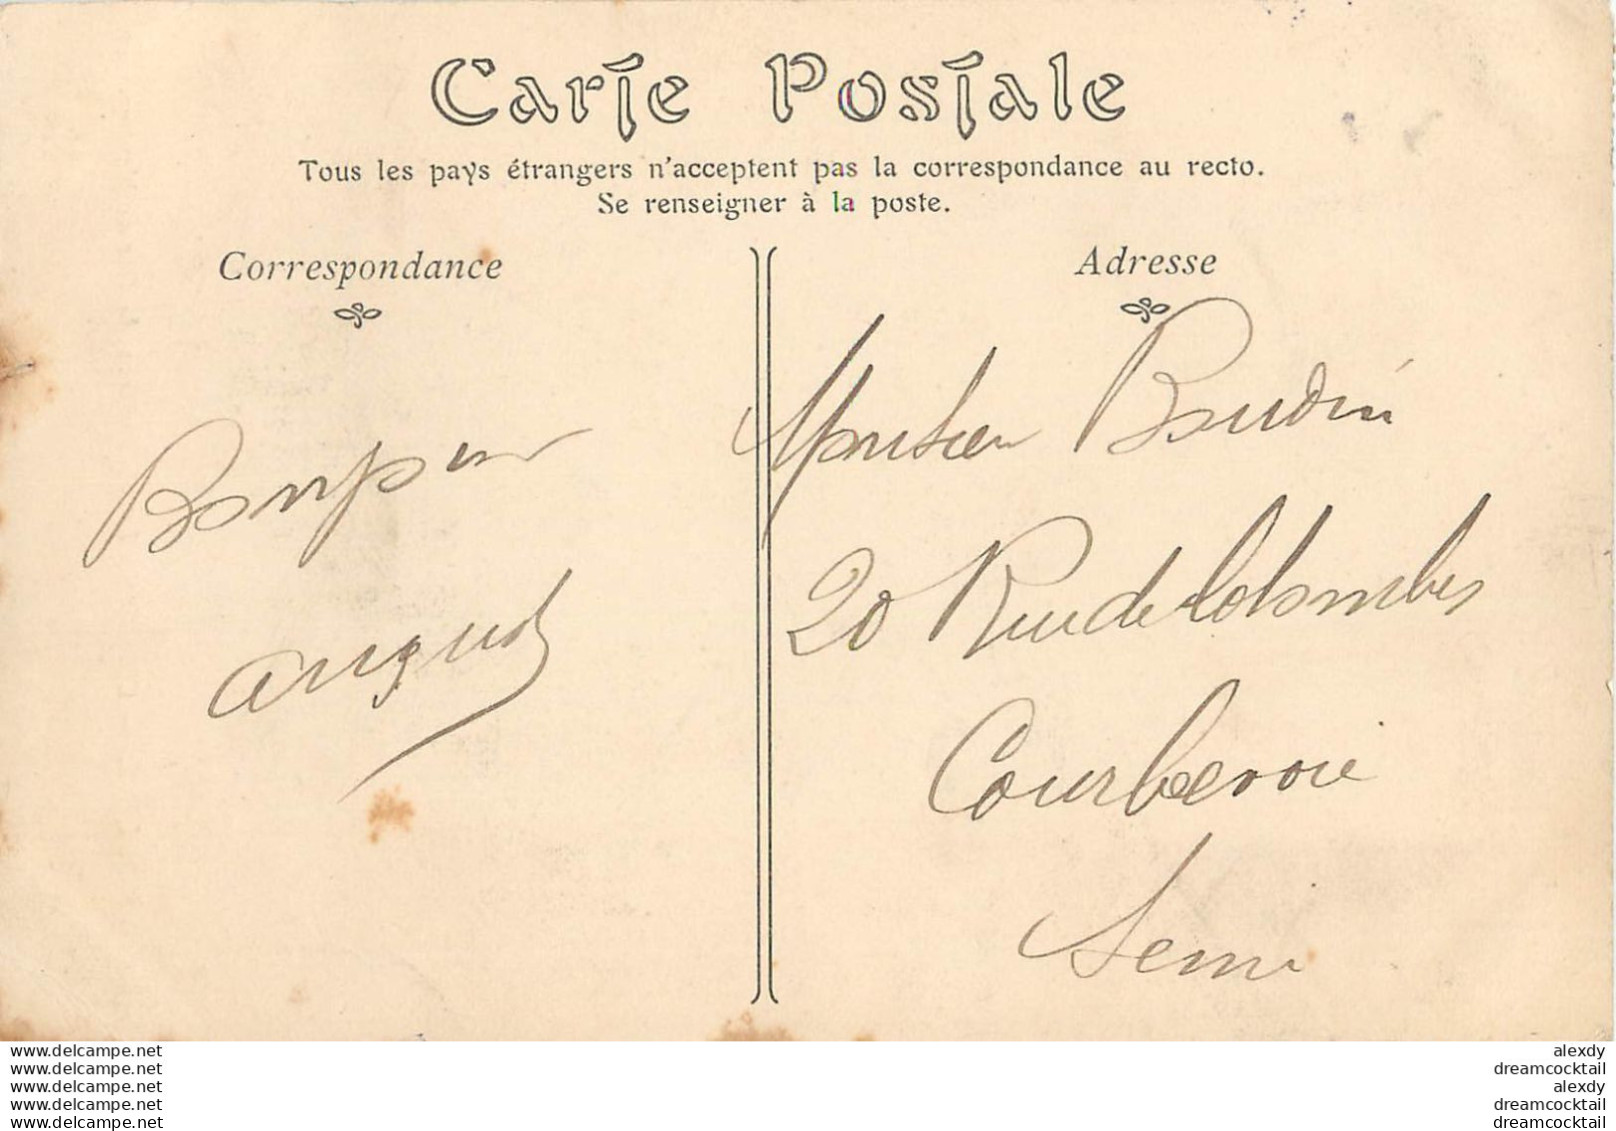 Carte Postale
Tous les pays étrangers n'acceptent pas la correspondance au recto.
Se renseigner à la poste.
Correspondance
Adresse
Bonjour
August
Monsieur Boudin
20 Rue de Colombes
Courbevoie
Seine
www.delcampe.net
www.delcampe.net
www.delcampe.net
www.delcampe.net
www.delcampe.net
alexdy
dreamcocktail
alexdy
dreamcocktail
dreamcocktail